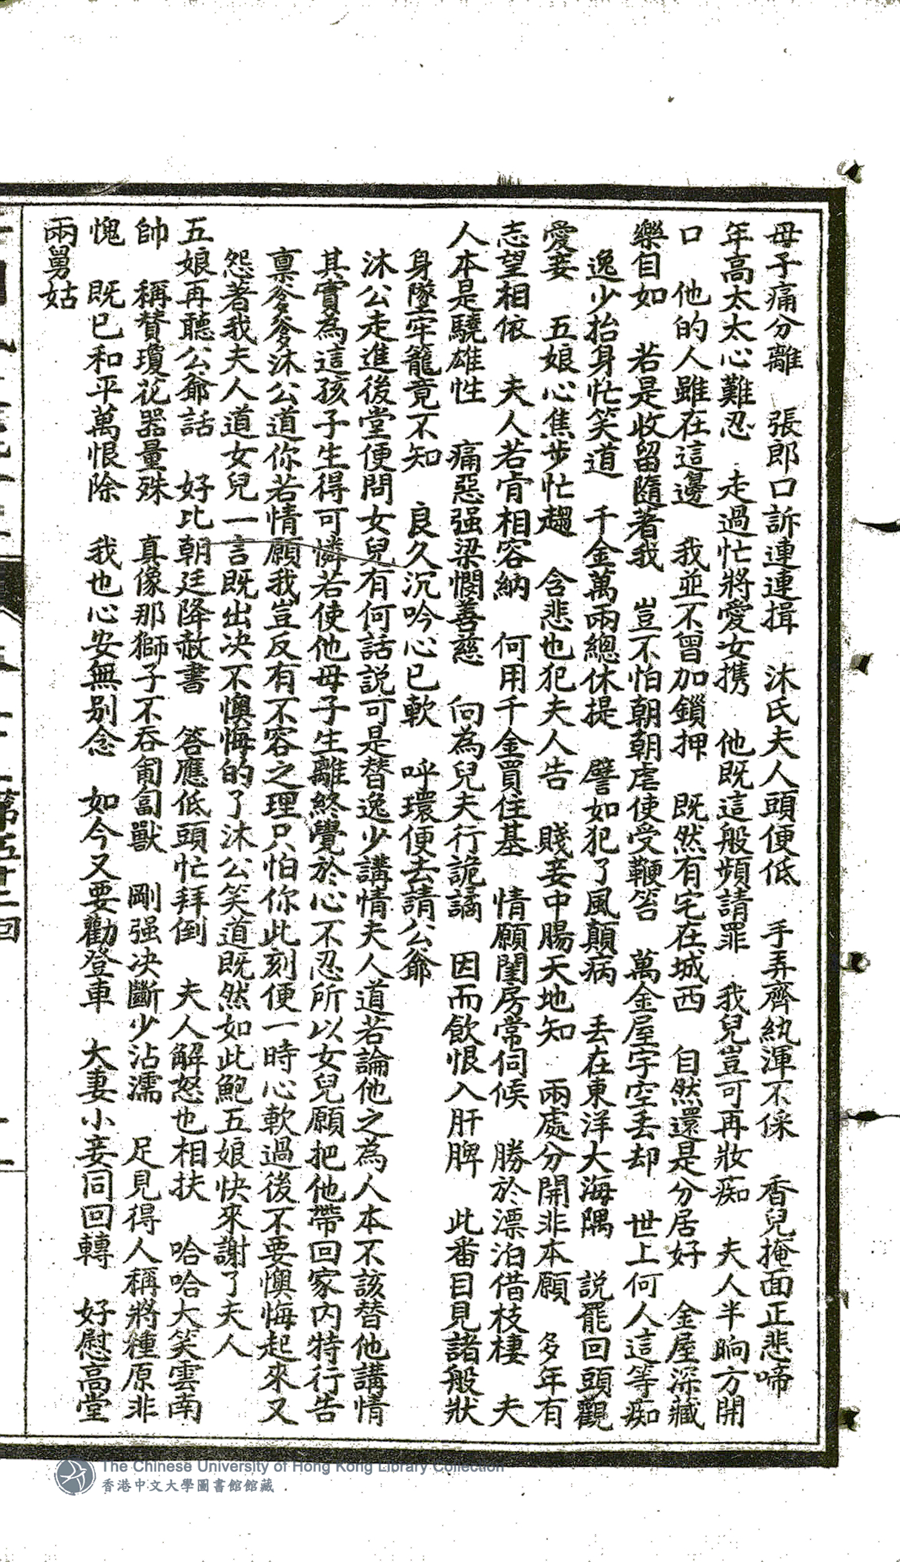 母子痛分離　張郎口訴連連揖　沐氏夫人頭便低　手弄齊紈渾不倸　香兒掩面正悲啼
年高太太心難忍　走過忙將愛女携　他既這般頻請罪　我兒豈可再妝痴　夫人半晌方開
口　他的人雖在這邊　我並不曾加鎖押　既然有宅在城西　自然還是分居好　金屋深藏
樂自如　若是收留隨著我　豈不怕朝朝虐使受鞭笞　萬金屋宇空丟却　世上何人這等痴
逸少抬身忙笑道　千金萬兩總休提　譬如犯了風顛病　丢在東洋大海隅　說罷回頭觀
愛妾　五娘心焦步忙趨　含悲也犯夫人告　賤妾中腸天地知　兩處分開非本願　多年有
志望相依　夫人若肯相容納　何用千金買住基　情願閨房常伺候　勝於漂泊借枝棲　夫
人本是驍雄性　痛惡强梁憫善慈　向為兒夫行詭譎　因而飲恨入肝脾　此番目見諸般狀
身墜牢籠竟不知　良久沉吟心已軟　呼環便去請公爺
沐公走進後堂便問女兒有何話說可是替逸少講情夫人道若論他之為人本不該替他講情
其實為這孩子生得可憐若使他母子生離終覺於心不忍所以女兒願把他帶回家內特行告
禀爹爹沐公道你若情願我豈反有不容之理只怕你此刻便一時心軟過後不要懊悔起來又
怨著我夫人道女兒一言既出决不懊悔的了沐公笑道既然如此鮑五娘快來謝了夫人
五娘再聽公爺話　好比朝廷降赦書　答應低頭忙拜倒　夫人解怒也相扶　哈哈大笑雲南
帥　稱賛瓊花器量殊　真像那獅子不吞匍匐獸　剛强决斷少沾濡　足見得人稱將種原非
愧　既已和平萬恨除　我也心安無别念　如今又要勸登車　大妻小妾同回轉　好慰高堂
兩舅姑
第五十二回
The Chinese University of Hong Kong Library Collection
香港中文大學圖書館館藏